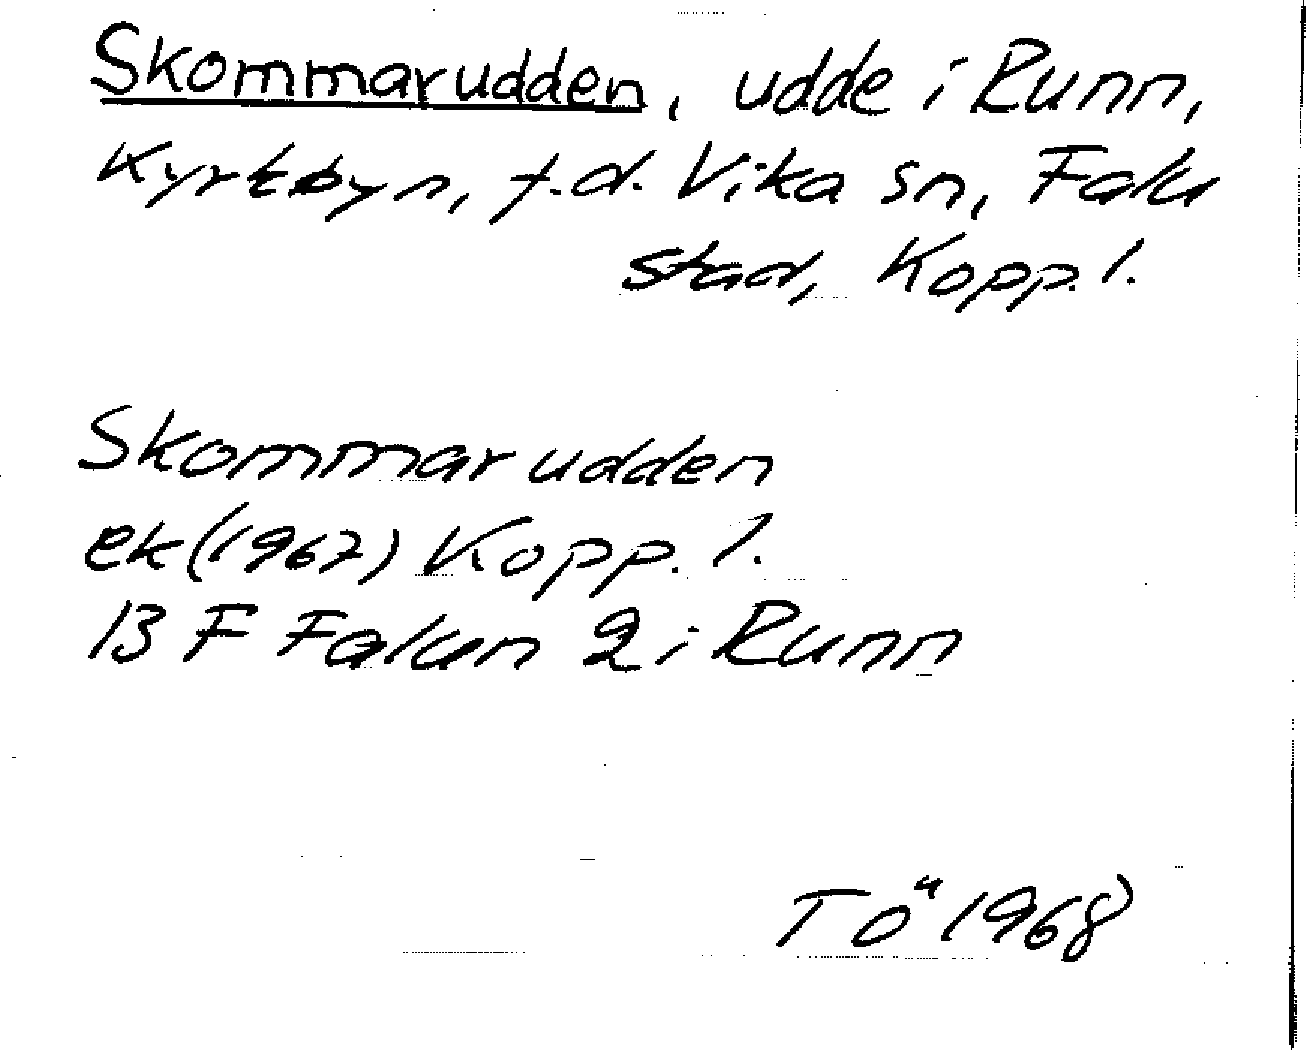 Skommarudden, udde i Runn,
Kyrkbyn, f.d. Vika sn, Falu
stad, Kopp.l.
Skommarudden
ek (1967) Kopp. l.
13 F Falun 2 i Runn
TÖ 1968